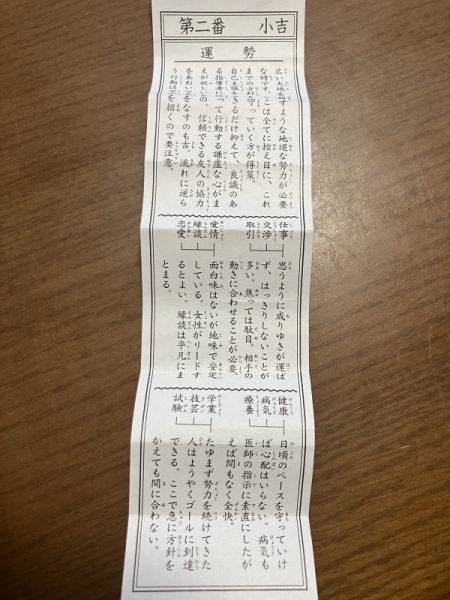 第二番 小吉
運勢
広い大地を すような地道な努力が必要
な時です。ここは全てに控え目に、これ
までの方針を守っていく方が得策。
自己主張をできるだけ抑えて、良識のあ
る指導者に って行動する謙虚な心がま
えが欲しいの。信頼できる友人の協力
をあおい をなすのも吉。流れに逆ら
う行動は を招くので要注意。
仕事
交渉
取引
思うように成りゆきが運ば
ず、はっきりしないことが
多い。焦っては駄目。相手の
動きに合わせることが必要。
愛情
縁談
恋愛
面白味はないが地味で安定
している。女性がリードす
るとよい。縁談は平凡にま
とまる。
健康
病気
療養
日頃のペースを守っていけ
ば心配はいらない。病気も
医師の指示に素直にしたが
えば間もなく全快。
学業
技芸
試験
たゆまず努力を続けてきた
人はようやくゴールに到達
できる。ここで急に方針を
かえても間に合わない。